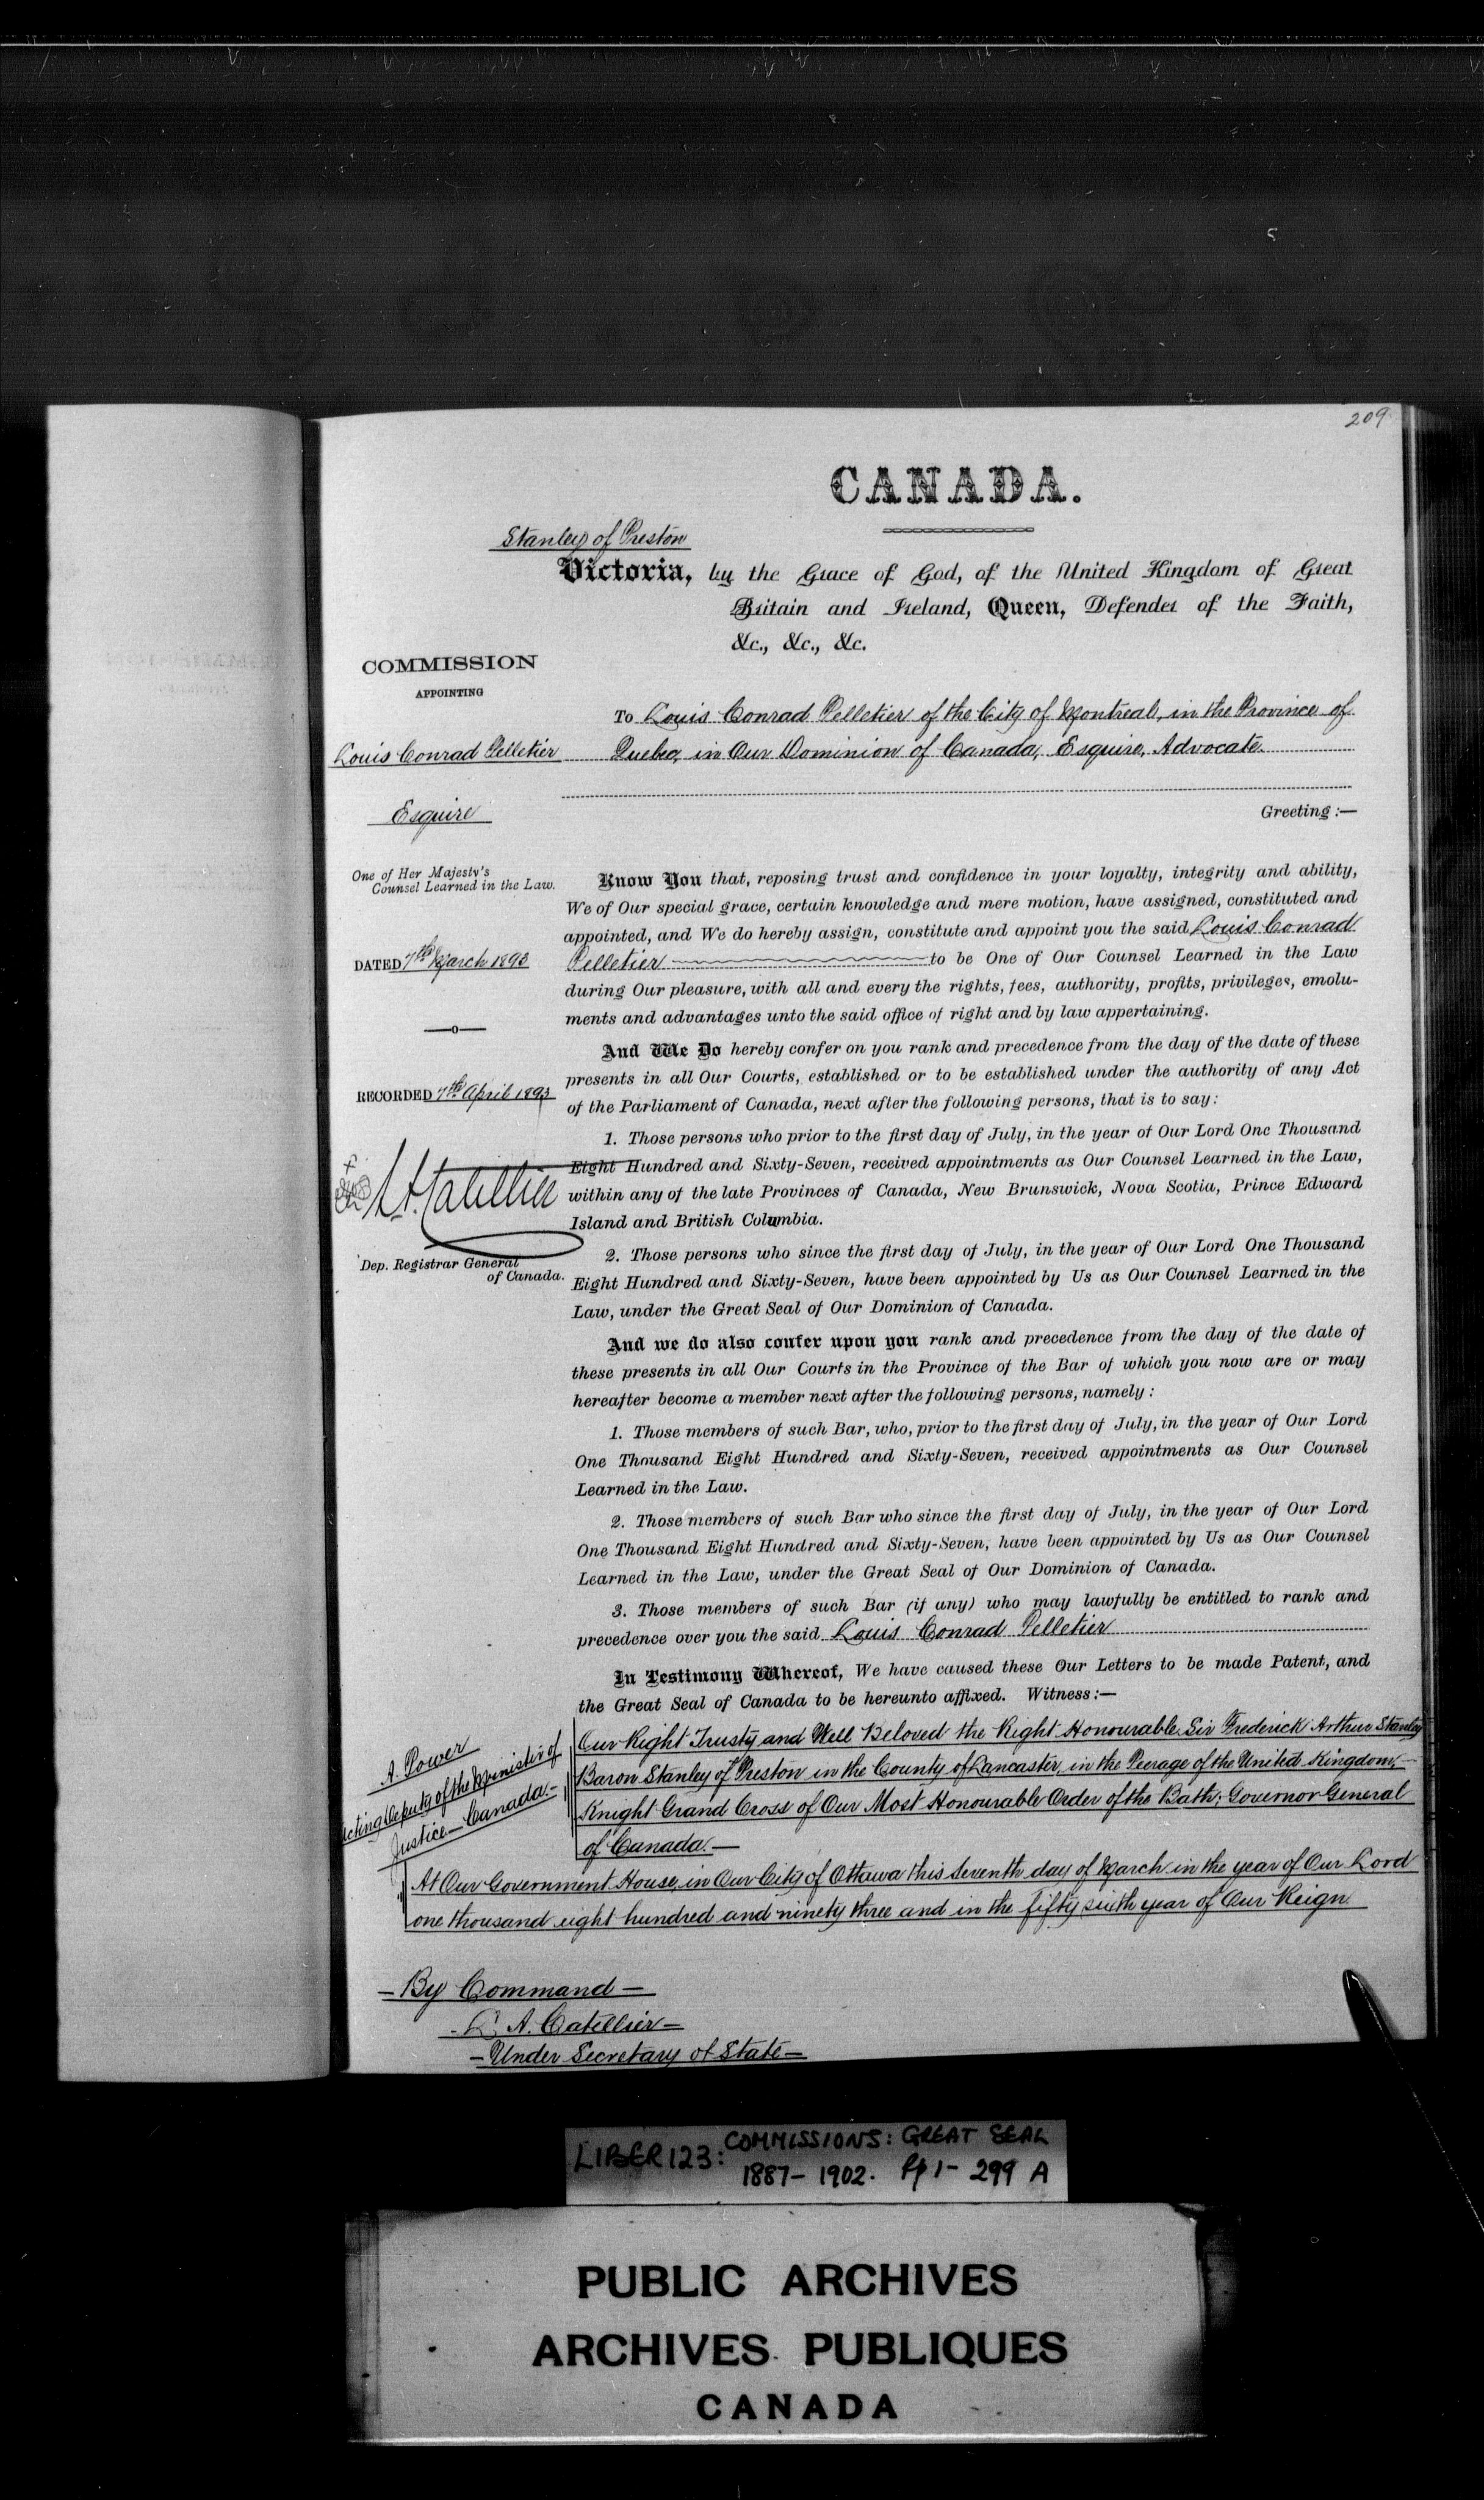 209
CANADA.
Stanley of Preston
Victoria, by the Grace of God, of the United Kingdom of Great
Britain and Ireland, Queen, Defender of the Faith,
&c., &c., &c.
COMMISSION
APPOINTING
Louis Conrad Pelletier
Esquire
One of Her Majesty's
Counsel Learned in the Law.
DATED 7th March 1893
—o—
RECORDED 7th April 1893
L. A. Catellier
Dep. Registrar General
of Canada.
To Louis Conrad Pelletier of the City of Montreal, in the Province of
Quebec, in Our Dominion of Canada, Esquire, Advocate.
Greeting :—
Know You that, reposing trust and confidence in your loyalty, integrity and ability,
We of Our special grace, certain knowledge and mere motion, have assigned, constituted and
appointed, and We do hereby assign, constitute and appoint you the said Louis Conrad
Pelletier to be One of Our Counsel Learned in the Law
during Our pleasure, with all and every the rights, fees, authority, profits, privileges, emolu-
ments and advantages unto the said office of right and by law appertaining.
And We Do hereby confer on you rank and precedence from the day of the date of these
presents in all Our Courts, established or to be established under the authority of any Act
of the Parliament of Canada, next after the following persons, that is to say :
1. Those persons who prior to the first day of July, in the year of Our Lord One Thousand
Eight Hundred and Sixty-Seven, received appointments as Our Counsel Learned in the Law,
within any of the late Provinces of Canada, New Brunswick, Nova Scotia, Prince Edward
Island and British Columbia.
2. Those persons who since the first day of July, in the year of Our Lord One Thousand
Eight Hundred and Sixty-Seven, have been appointed by Us as Our Counsel Learned in the
Law, under the Great Seal of Our Dominion of Canada.
And we do also confer upon you rank and precedence from the day of the date of
these presents in all Our Courts in the Province of the Bar of which you now are or may
hereafter become a member next after the following persons, namely :
1. Those members of such Bar, who, prior to the first day of July, in the year of Our Lord
One Thousand Eight Hundred and Sixty-Seven, received appointments as Our Counsel
Learned in the Law.
2. Those members of such Bar who since the first day of July, in the year of Our Lord
One Thousand Eight Hundred and Sixty-Seven, have been appointed by Us as Our Counsel
Learned in the Law, under the Great Seal of Our Dominion of Canada.
3. Those members of such Bar (if any) who may lawfully be entitled to rank and
precedence over you the said Louis Conrad Pelletier
In Testimony Whereof, We have caused these Our Letters to be made Patent, and
the Great Seal of Canada to be hereunto affixed. Witness :—
A. Power
Acting Deputy of the Minister of
Justice — Canada.—
Our Right Trusty and Well Beloved the Right Honourable Sir Frederick Arthur Stanley
Baron Stanley of Preston in the County of Lancaster, in the Peerage of the United Kingdom,—
Knight Grand Cross of Our Most Honourable Order of the Bath; Governor General
of Canada.—
At Our Government House, in Our City of Ottawa this Seventh day of March in the year of Our Lord
one thousand eight hundred and ninety three and in the fifty sixth year of Our Reign
— By Command —
L. A. Catellier —
— Under Secretary of State —
LIBER 123: COMMISSIONS: GREAT SEAL
1887- 1902. Pp 1- 299 A
PUBLIC ARCHIVES
ARCHIVES PUBLIQUES
CANADA